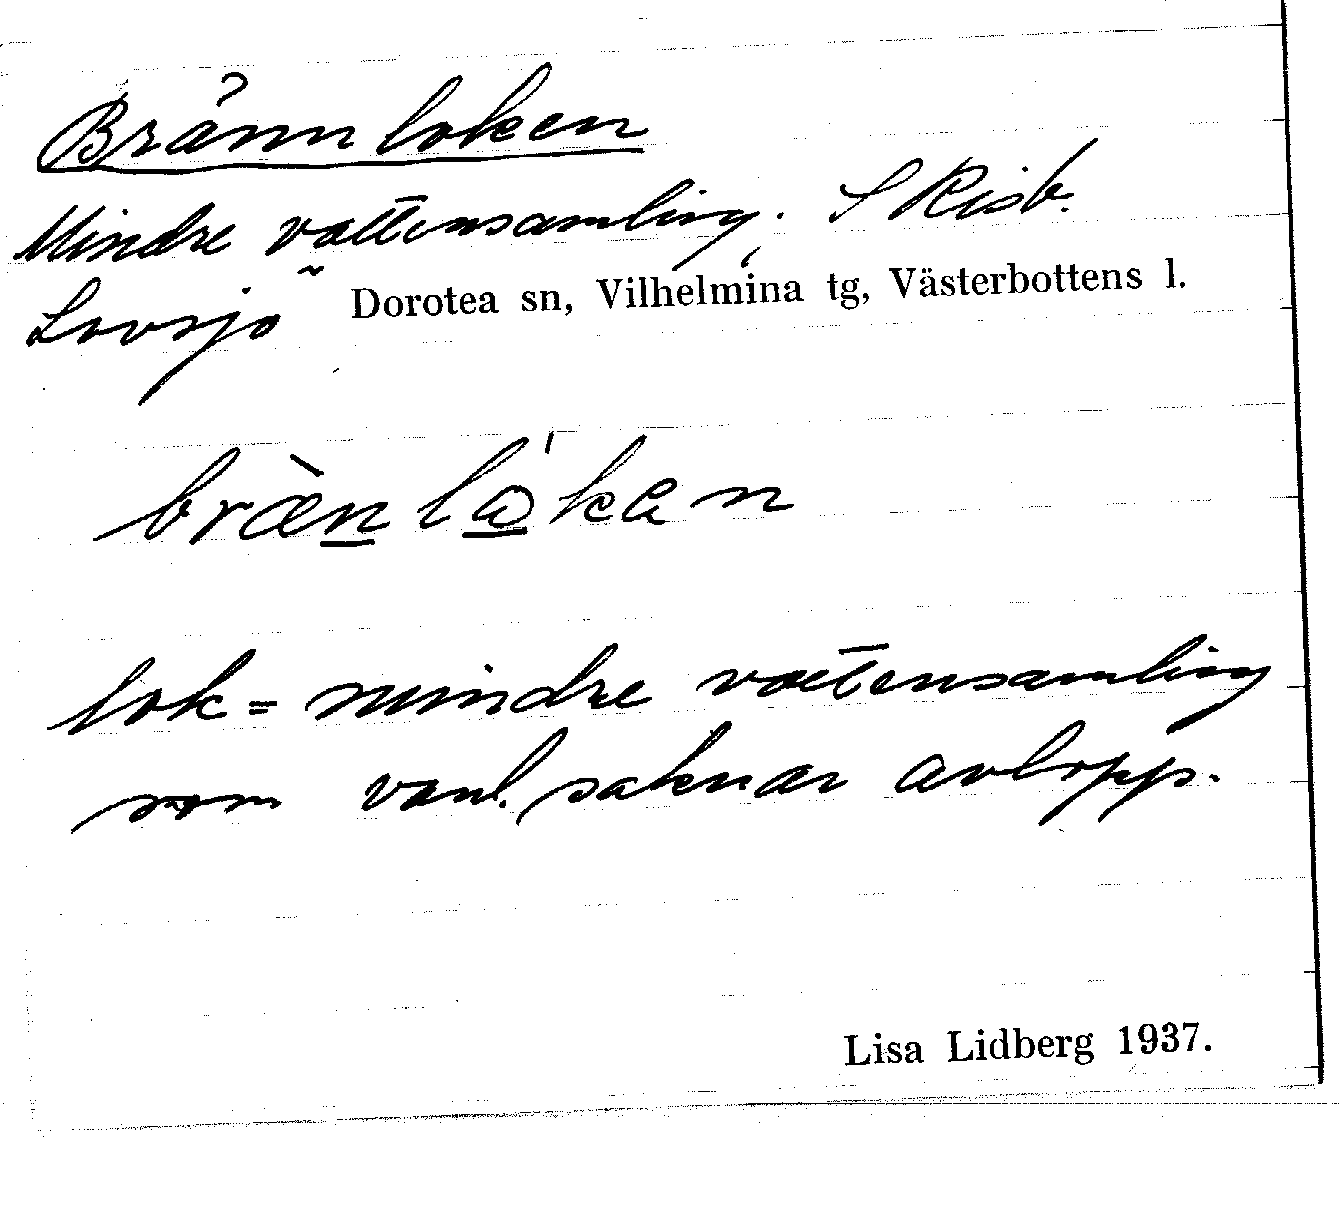 Brännloken
Mindre vattensamling. S Risb.
Lovsjö Dorotea sn, Vilhelmina tg, Västerbottens l.
bræ̀n̲lo̲̍kɐn
lok = mindre vattensamling
som vanl. saknar avlopp.
Lisa Lidberg 1937.